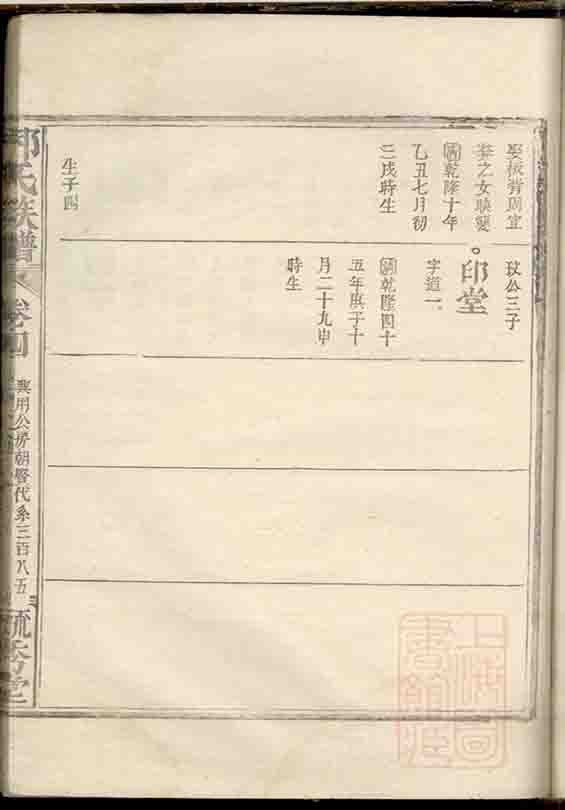 娶板背周宜
恭之女映變
乾隆十年
乙丑七月初
三戌時生
生子四
玟公三子
印堂
字道一
乾隆四十
五年庚子十
月二十九申
時生
氏族譜
卷四
巽用公房朝賢代系三百八五
流芳堂
上海圖書館藏